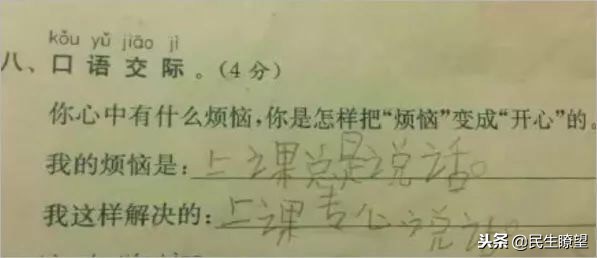 kǒu yǔ jiāo jì
八、口语交际。(4分)
你心中有什么烦恼,你是怎样把“烦恼”变成“开心”的。
我的烦恼是:上课总是说话。
我这样解决的:上课专心说话。
头条 @民生瞭望